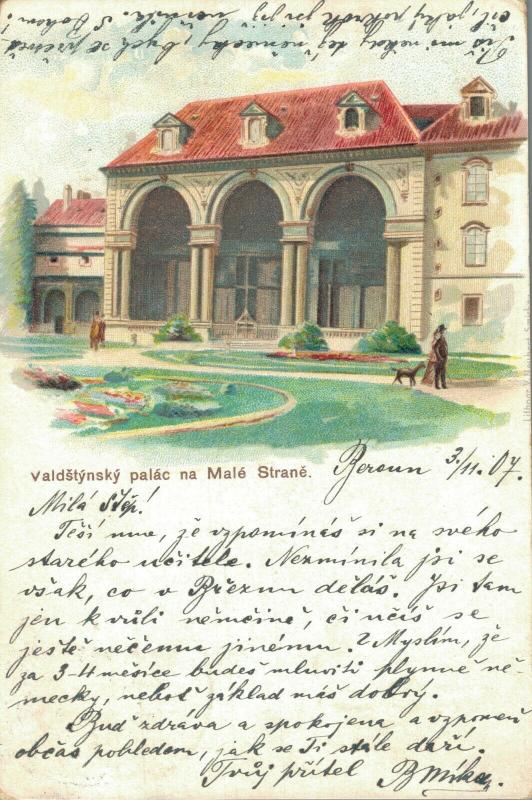 Valdštýnský palác na Malé Straně.
Beroun 3./11. 07.
Milá Štěp!
Těší mne, že vzpomínáš si na svého
starého učitele. Nezmínila jsi se
však, co v Březnu děláš. Jsi tam
jen k vůli němčině, či učíš se
ještě něčemu jinému? Myslím, že
za 3-4 měsíce budeš mluviti plynně ně-
mecky, neboť základ máš dobrý.
Buď zdráva a spokojena a vzpomeň
občas pohledem, jak se Ti stále daří.
Tvůj přítel
Piš mi někdy též německy, bych se přesvěd
čil, jaký pokrok jsi již S Bohem!